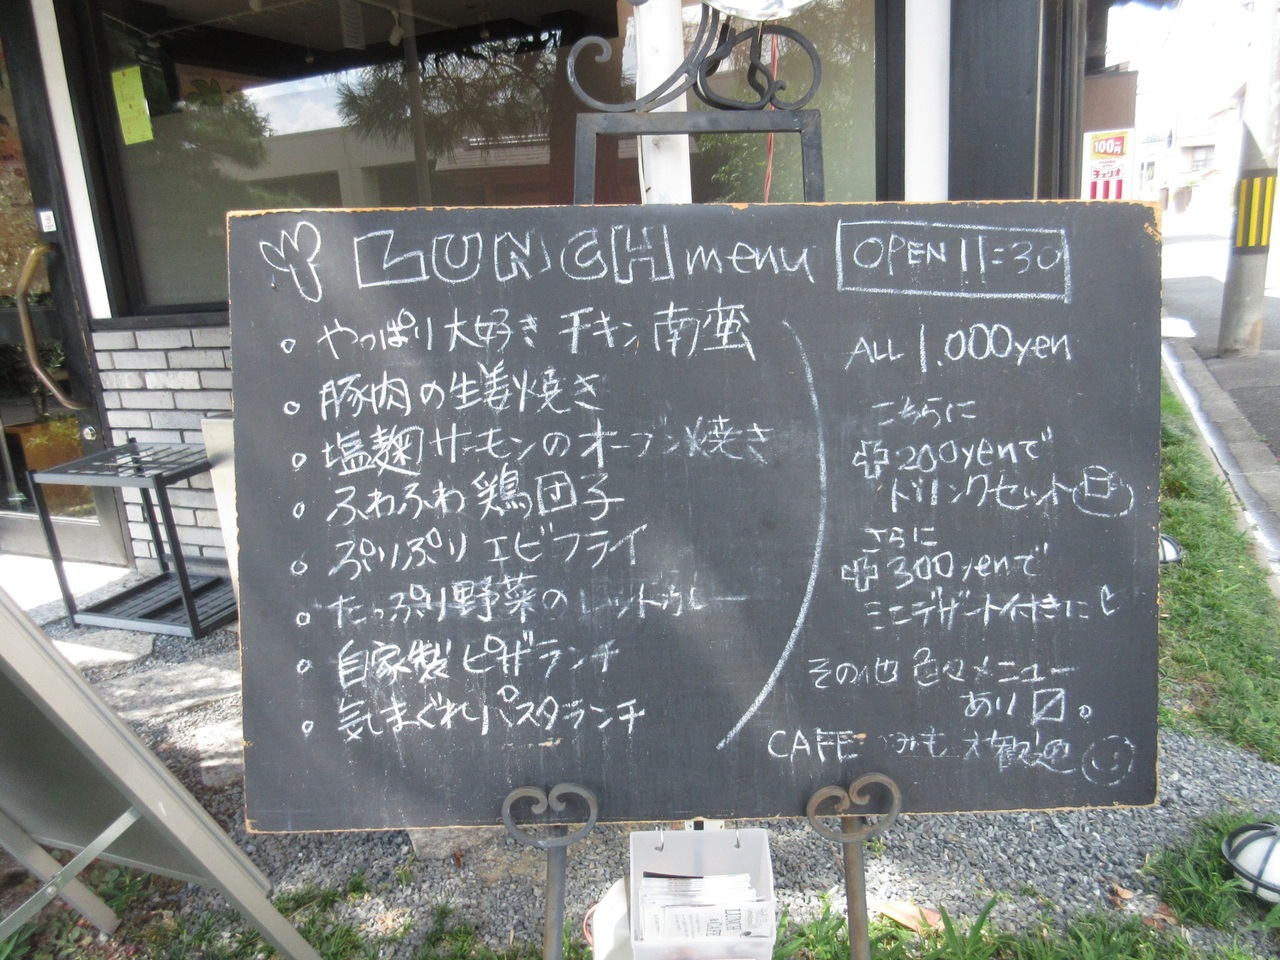 LUNCH menu OPEN 11:30
やっぱり大好き チキン南蛮
豚肉の生姜焼き
塩麹サーモンのオーブン焼き
ふわふわ鶏団子
ぷりぷりエビフライ
たっぷり野菜のレッドカレー
自家製ピザランチ
気まぐれパスタランチ
ALL 1.000yen
こちらに
+200yenで
ドリンクセット
さらに
+300yenで
ミニデザート付きに
その他 色々メニュー
あり〼。
CAFE のみも 大歓迎
100円
チェリオ
LUNCH